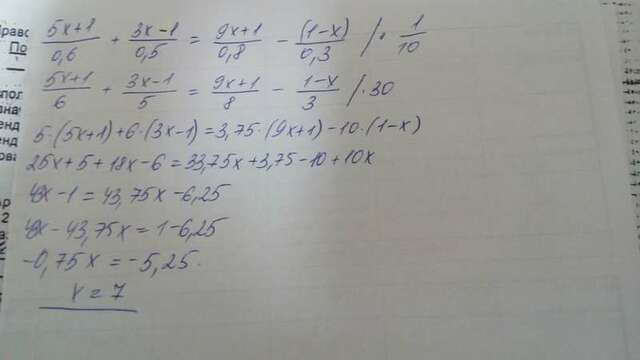 (5x+1)/0,6 + (3x-1)/0,5 = (9x+1)/0,8 - (1-x)/0,3 / · 1/10
(5x+1)/6 + (3x-1)/5 = (9x+1)/8 - (1-x)/3 / · 30
5·(5x+1)+6·(3x-1)=3,75·(9x+1)-10·(1-x)
25x+5+18x-6=33,75x+3,75-10+10x
43x-1=43,75x-6,25
43x-43,75x=1-6,25
-0,75x=-5,25.
x=7